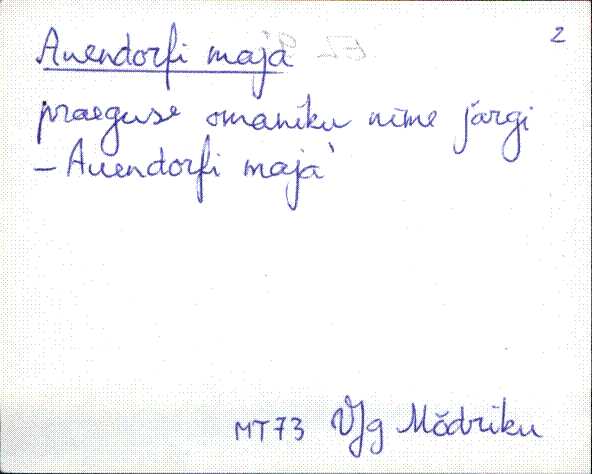 2
Auendorfi maja
praeguse omaniku nime järgi
– Auendorfi maja`
MT73 VJg Mõdriku